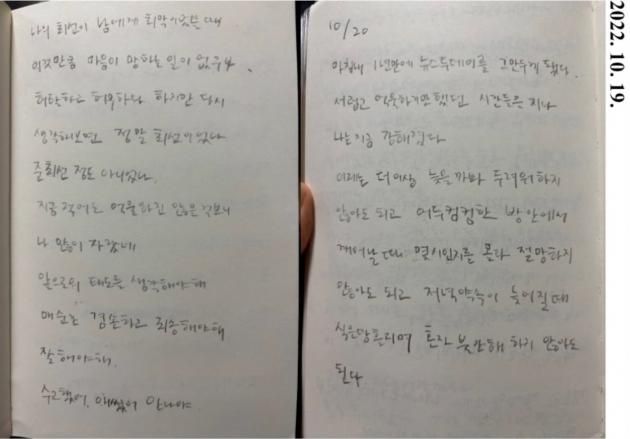 나의 최선이 남에게 최악이었을 때
이것만큼 마음이 망하는 일이 없우나.
허탈하고 허무하다. 하지만 다시
생각해보면 정말 최선이었나
준최선 정도 아니었나.
지금 적어도 억울하진 않은 걸 보니
나 많이 자랐네
앞으로의 태도를 생각해야 해
매순간 겸손하고 죄송해야 해
잘해야 해.
수고했어, 애썼어 안나야
10/20
마침내 1년만에 뉴스투데이를 그만두게 됐다.
서럽고 억울하기만 했던 시간들은 지나
나는 지금 강해졌다
이제는 더이상 늦을까봐 두려워하지
않아도 되고 어두컴컴한 방 안에서
깨어날 때마다 몇시인지를 몰라 절망하지
않아도 되고 저녁약속이 늦어질 때
식은땀 흘리며 혼자 불안해 하지 않아도
된다
2022. 10. 19.